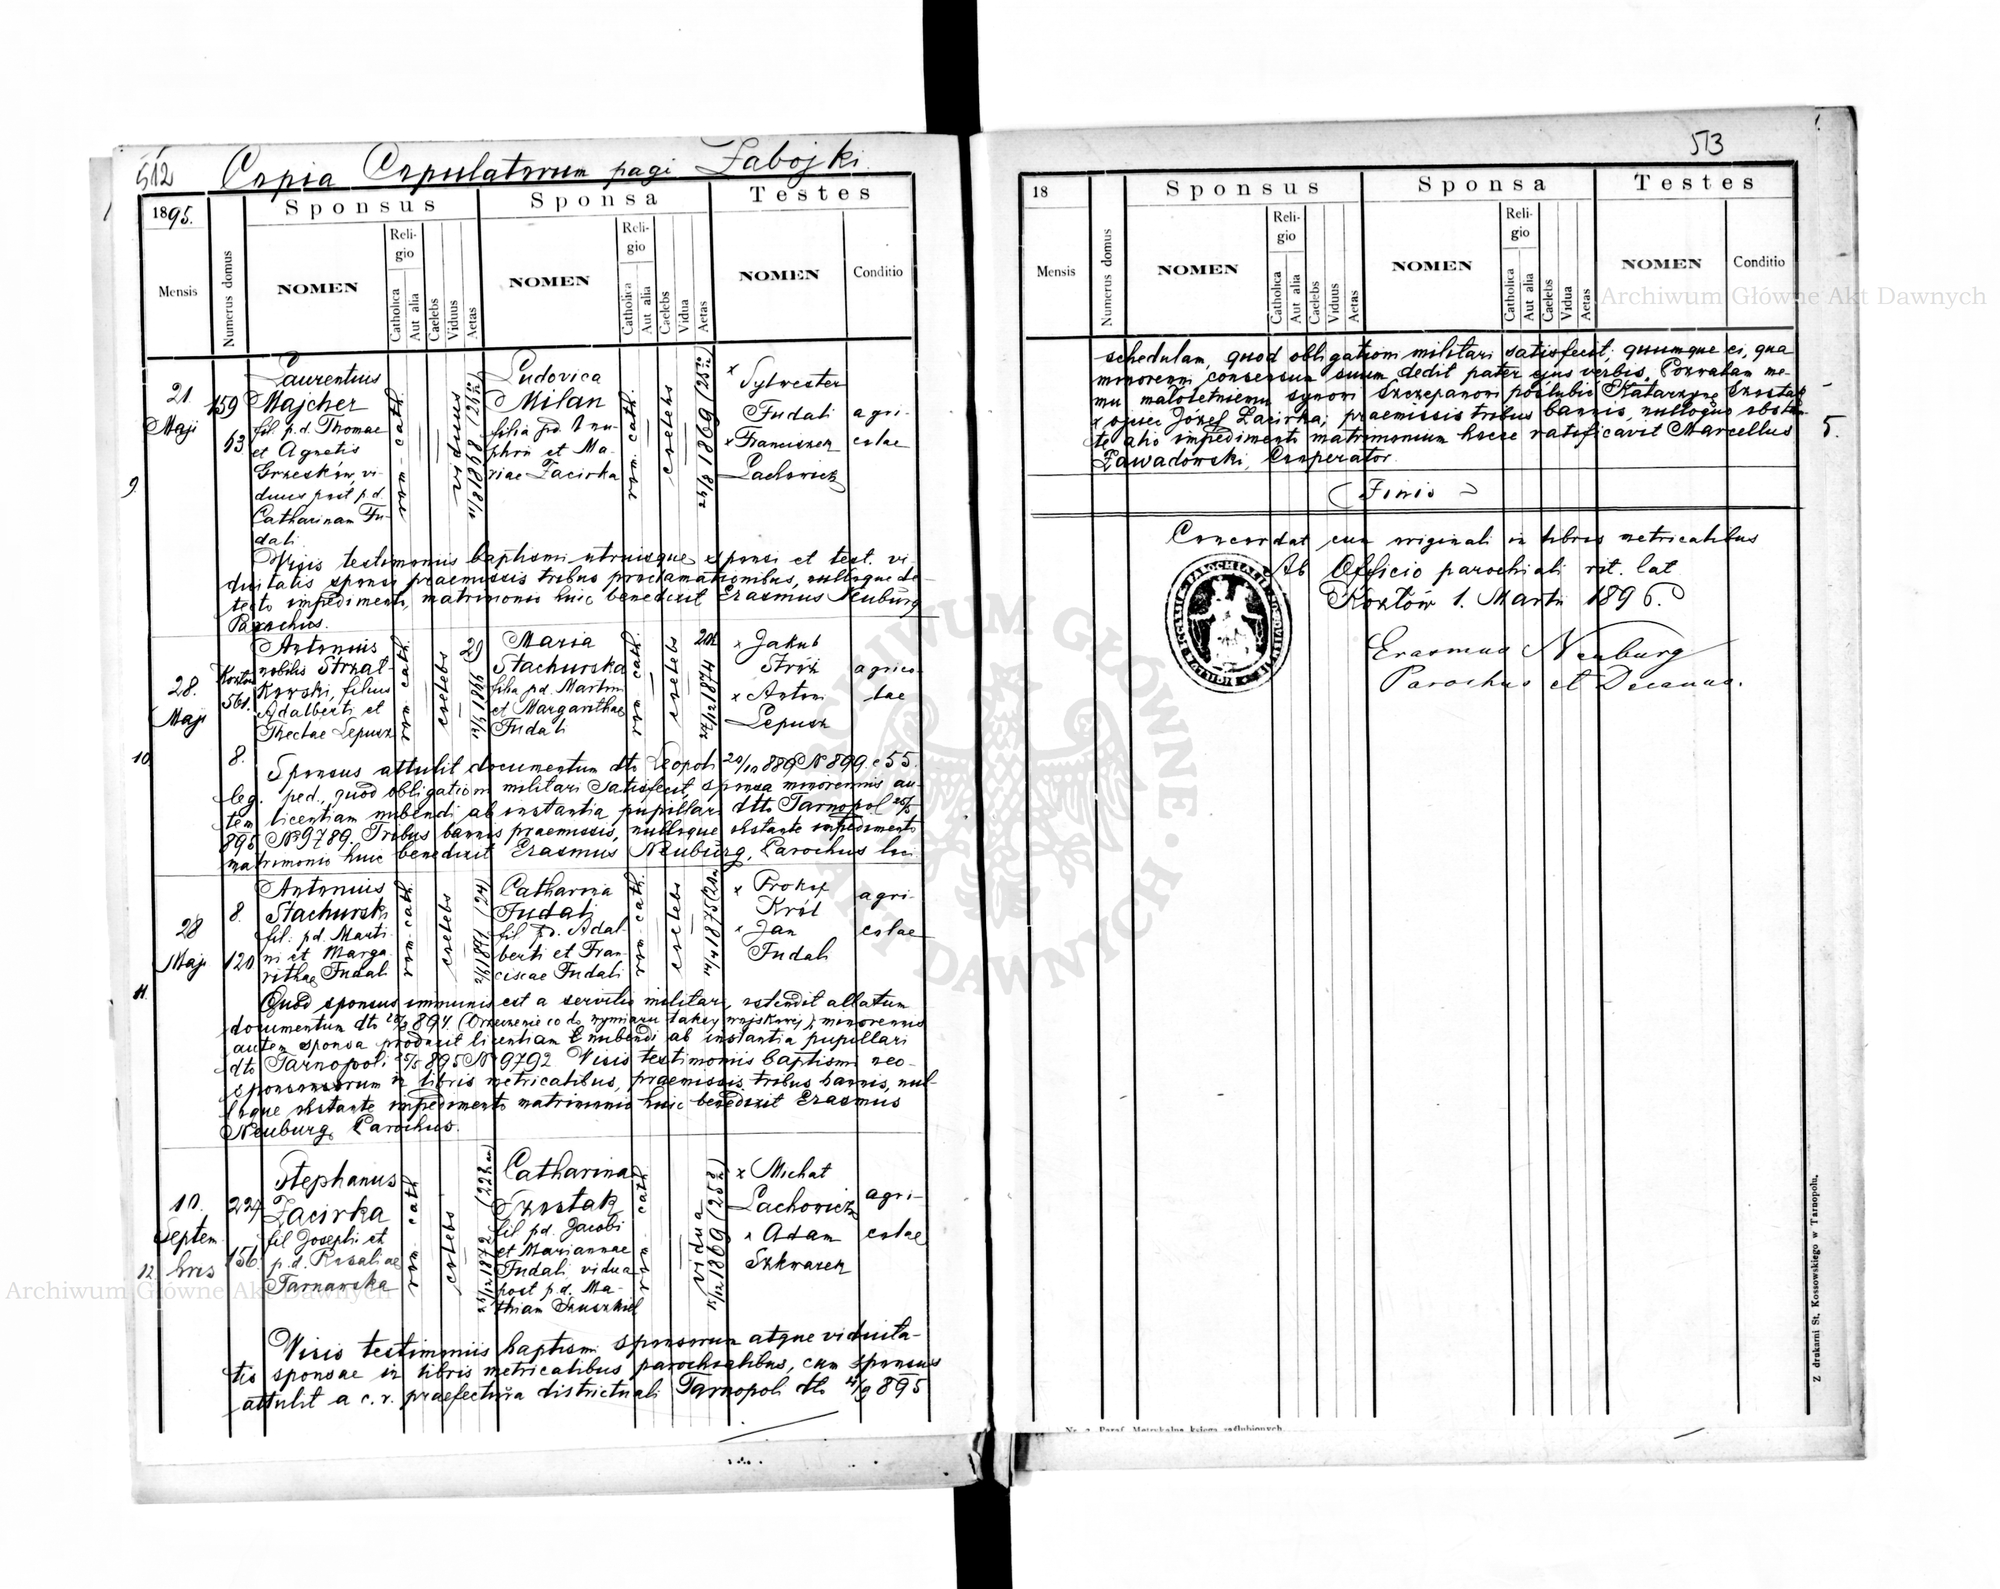 512 Copia Copulatorum pagi Zabojki.
1895.
Sponsus
Sponsa
Testes
Mensis
Numerus domus
NOMEN
Religio
Catholica
Aut alia
Caelebs
Viduus
Aetas
NOMEN
Religio
Catholica
Aut alia
Caelebs
Vidua
Aetas
NOMEN
Conditio
9.
21.
Maji
159
53
Laurentius
Majcher
fil. p.d. Thomae
et Agnetis
Grzesków, vi-
duus post p.d.
Catharinam Fu-
dali
rom. cath.
viduus
Ludovica
Milan
filia p.d. Onu-
phrii et Ma-
riae Zacirka
rom. cath.
caelebs
x Sylwester
Fudali
x Franciszek
Lachowicz
agri-
colae
Visis testimoniis baptismi utriusque sponsi et test. vi-
duitatis sponsi praemissis tribus proclamationibus, nulloque de-
tecto impedimento, matrimonio huic benedixit Erasmus Neuburg
Parochus.
10.
28.
Maji
561.
8.
Antonius
nobilis Strzał-
kowski, filius
Adalberti et
Theclae Lepusz
rom. cath.
caelebs
29
Maria
Stachurska
filia pd. Martini
et Margarithae
Fudali
rom. cath.
caelebs
x Jakub
Stróż
x Antoni
Lepusz
agrico-
lae
Sponsus attulit documentum dto Leopoli 20/10 889 N 899. c 55.
leg. ped., quod obligationi militari satisfecit, sponsa minorennis au-
tem licentiam nubendi ab instantia pupillari dtto Tarnopol 25/5
895 N 9789. Tribus bannis praemissis, nulloque obstante impedimento
matrimonio huic benedixit Erasmus Neuburg, Parochus loci
11.
28
Maji
8.
120
Antonius
Stachurski
fil. pd. Marti-
ni et Marga-
rithae Fudali
rom. cath.
caelebs
Catharina
Fudali
fil. p.d. Adal-
berti et Fran-
ciscae Fudali
rom. cath.
caelebs
x Prokop
Król
x Jan
Fudali
agri-
colae
Quod sponsus immunis est a servitio militari, ostendit allatum
documentum dto 894. (Orzeczenie co do wymiaru taksy wojskowej), minorennis
autem sponsa produxit licentiam nubendi ab instantia pupillari
dto Tarnopoli 25/5 895 N 9792. Visis testimoniis baptismi neo-
sponsorum in libris metricalibus, praemissis tribus bannis, nul-
loque obstante impedimento matrimonio huic benedixit Erasmus
Neuburg, Parochus.
12.
10.
Septem
bris
224
156
Stephanus
Zacirka
fil Josephi et
p.d. Rosaliae
Tarnawska
rom. cath.
caelebs
Catharina
Szostak
fil pd. Jacobi
et Mariannae
Fudali vidua
post p.d. Ma-
thiam
rom. cath
vidua
x Michał
Lachowicz
x Adam
Szkwarek
agri-
colae
Visis testimoniis baptismi sponsorum atque viduita-
tis sponsae in libris metricalibus parochialibus, cum sponsus
attulit a c. r. praefectura districtuali Tarnopoli dto 4/9 895
513
18
Sponsus
Sponsa
Testes
Mensis
Numerus domus
NOMEN
Religio
Catholica
Aut alia
Caelebs
Viduus
Aetas
NOMEN
Religio
Catholica
Aut alia
Caelebs
Vidua
Aetas
NOMEN
Conditio
schedulam, quod obligationi militari satisfecit; quumque ei, qua
minorenni consensum suum dedit pater ejus verbis, Pozwalam me-
mu małoletniemu synowi Szczepanowi poślubić Katarzynę Szostak
x ojciec Józef Zacirka; praemissis tribus bannis, nulloque obstan-
te alio impedimento matrimonium hocce ratificavit Marcellus
Zawadowski, Cooperator.
5.
Finis
Concordat cum originali in libris metricalibus
Ab Officio parochiali rit. lat
Kozłów 1. Martii 1896.
Erasmus Neuburg
Parochus et Decanus.
Nr. 2. Paraf. Metrykalna księga zaślubionych.
Z drukarni St. Kossowskiego w Tarnopolu.
Archiwum Główne Akt Dawnych
Archiwum Główne Akt Dawnych
ARCHIWUM GŁÓWNE AKT DAWNYCH